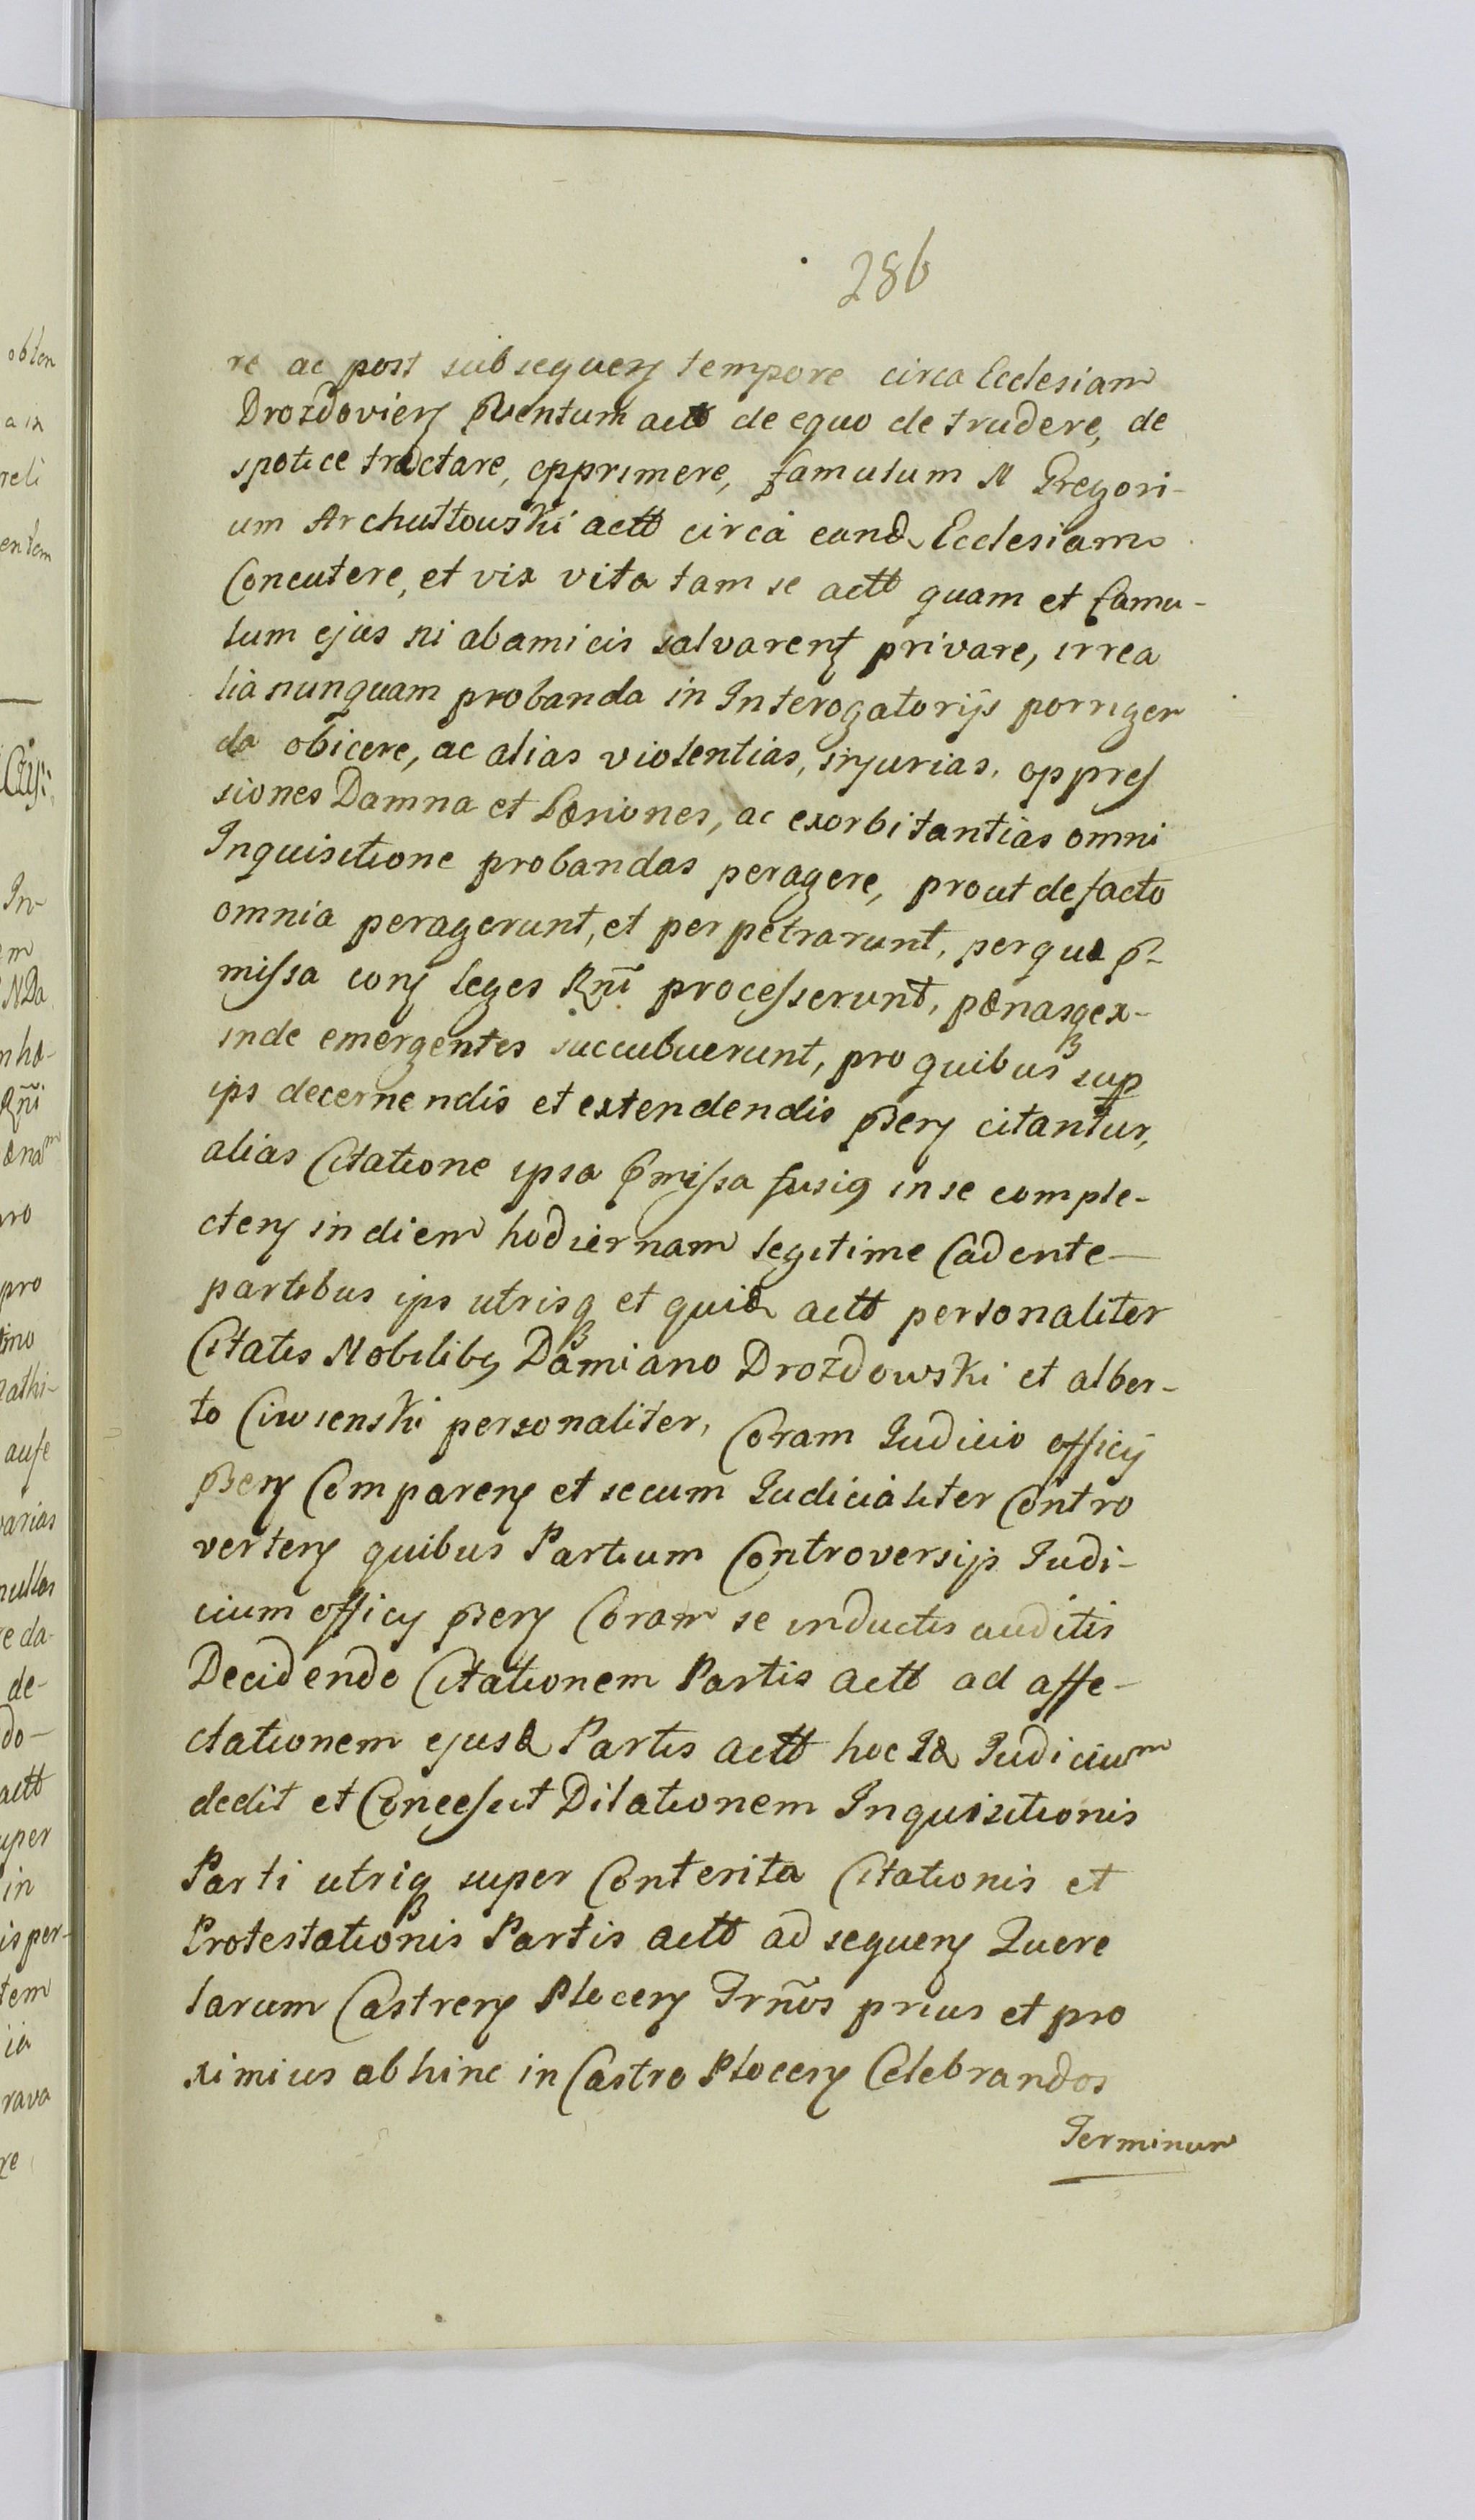 286
re ac post subsequen tempore circa Ecclesiam
Drozdovien pventum actt de equo detrudere, de
spotice tractare, opprimere, famulum N Gregori-
um Archuttouski actt circa eand Ecclesiam
Concutere, et vix vita tam se actt quam et famu-
lum ejus ni ab amicis salvarent privare, irrea
lia nunquam probanda in Interogatorijs porrigen
da obicere, ac alias violentias, injurias, oppres
siones Damna et Læsiones, ac exorbitantias omni
Inquisitione probandas peragere, prout de facto
omnia peragerunt, et perpetrarunt, per quæ p-
missa con leges Rñi processerunt, pænasq ex-
inde emergentes succubuerunt, pro quibus sup
ips decernendis et extendendis psen citantur,
alias Citatione ipsa pmissa fusiq in se comple-
cten in diem hodiernam legitime Cadente
partibus ips utrisq et quid actt personaliter
Citatis Nobilibq Damiano Drozdowski et alber-
to Ciwsenski personaliter, Coram Judicio officij
psen Comparen et secum Judicialiter Contro
verten quibus Partium Controversijs Judi-
cium officij psen Coram se inductis auditis
Decidendo Citationem Partis actt ad affe-
ctationem ejusd Partis actt hoc Id Judicium
dedit et Concessit Dilationem Inquisitionis
Parti utriq super Contenta Citationis et
Protestationis Partis actt ad sequen Quere
larum Castren Plocen Trños prius et pro
ximius abhinc in Castro Plocen Celebrandos
Terminum
obten
a in
reli
entem
In-
em
nha-
Rñi
ænam
pro
pro
timo
athi-
ause
varias
nullas
re da-
de-
do-
actt
uper
in
is per-
tem
ia
rava
re